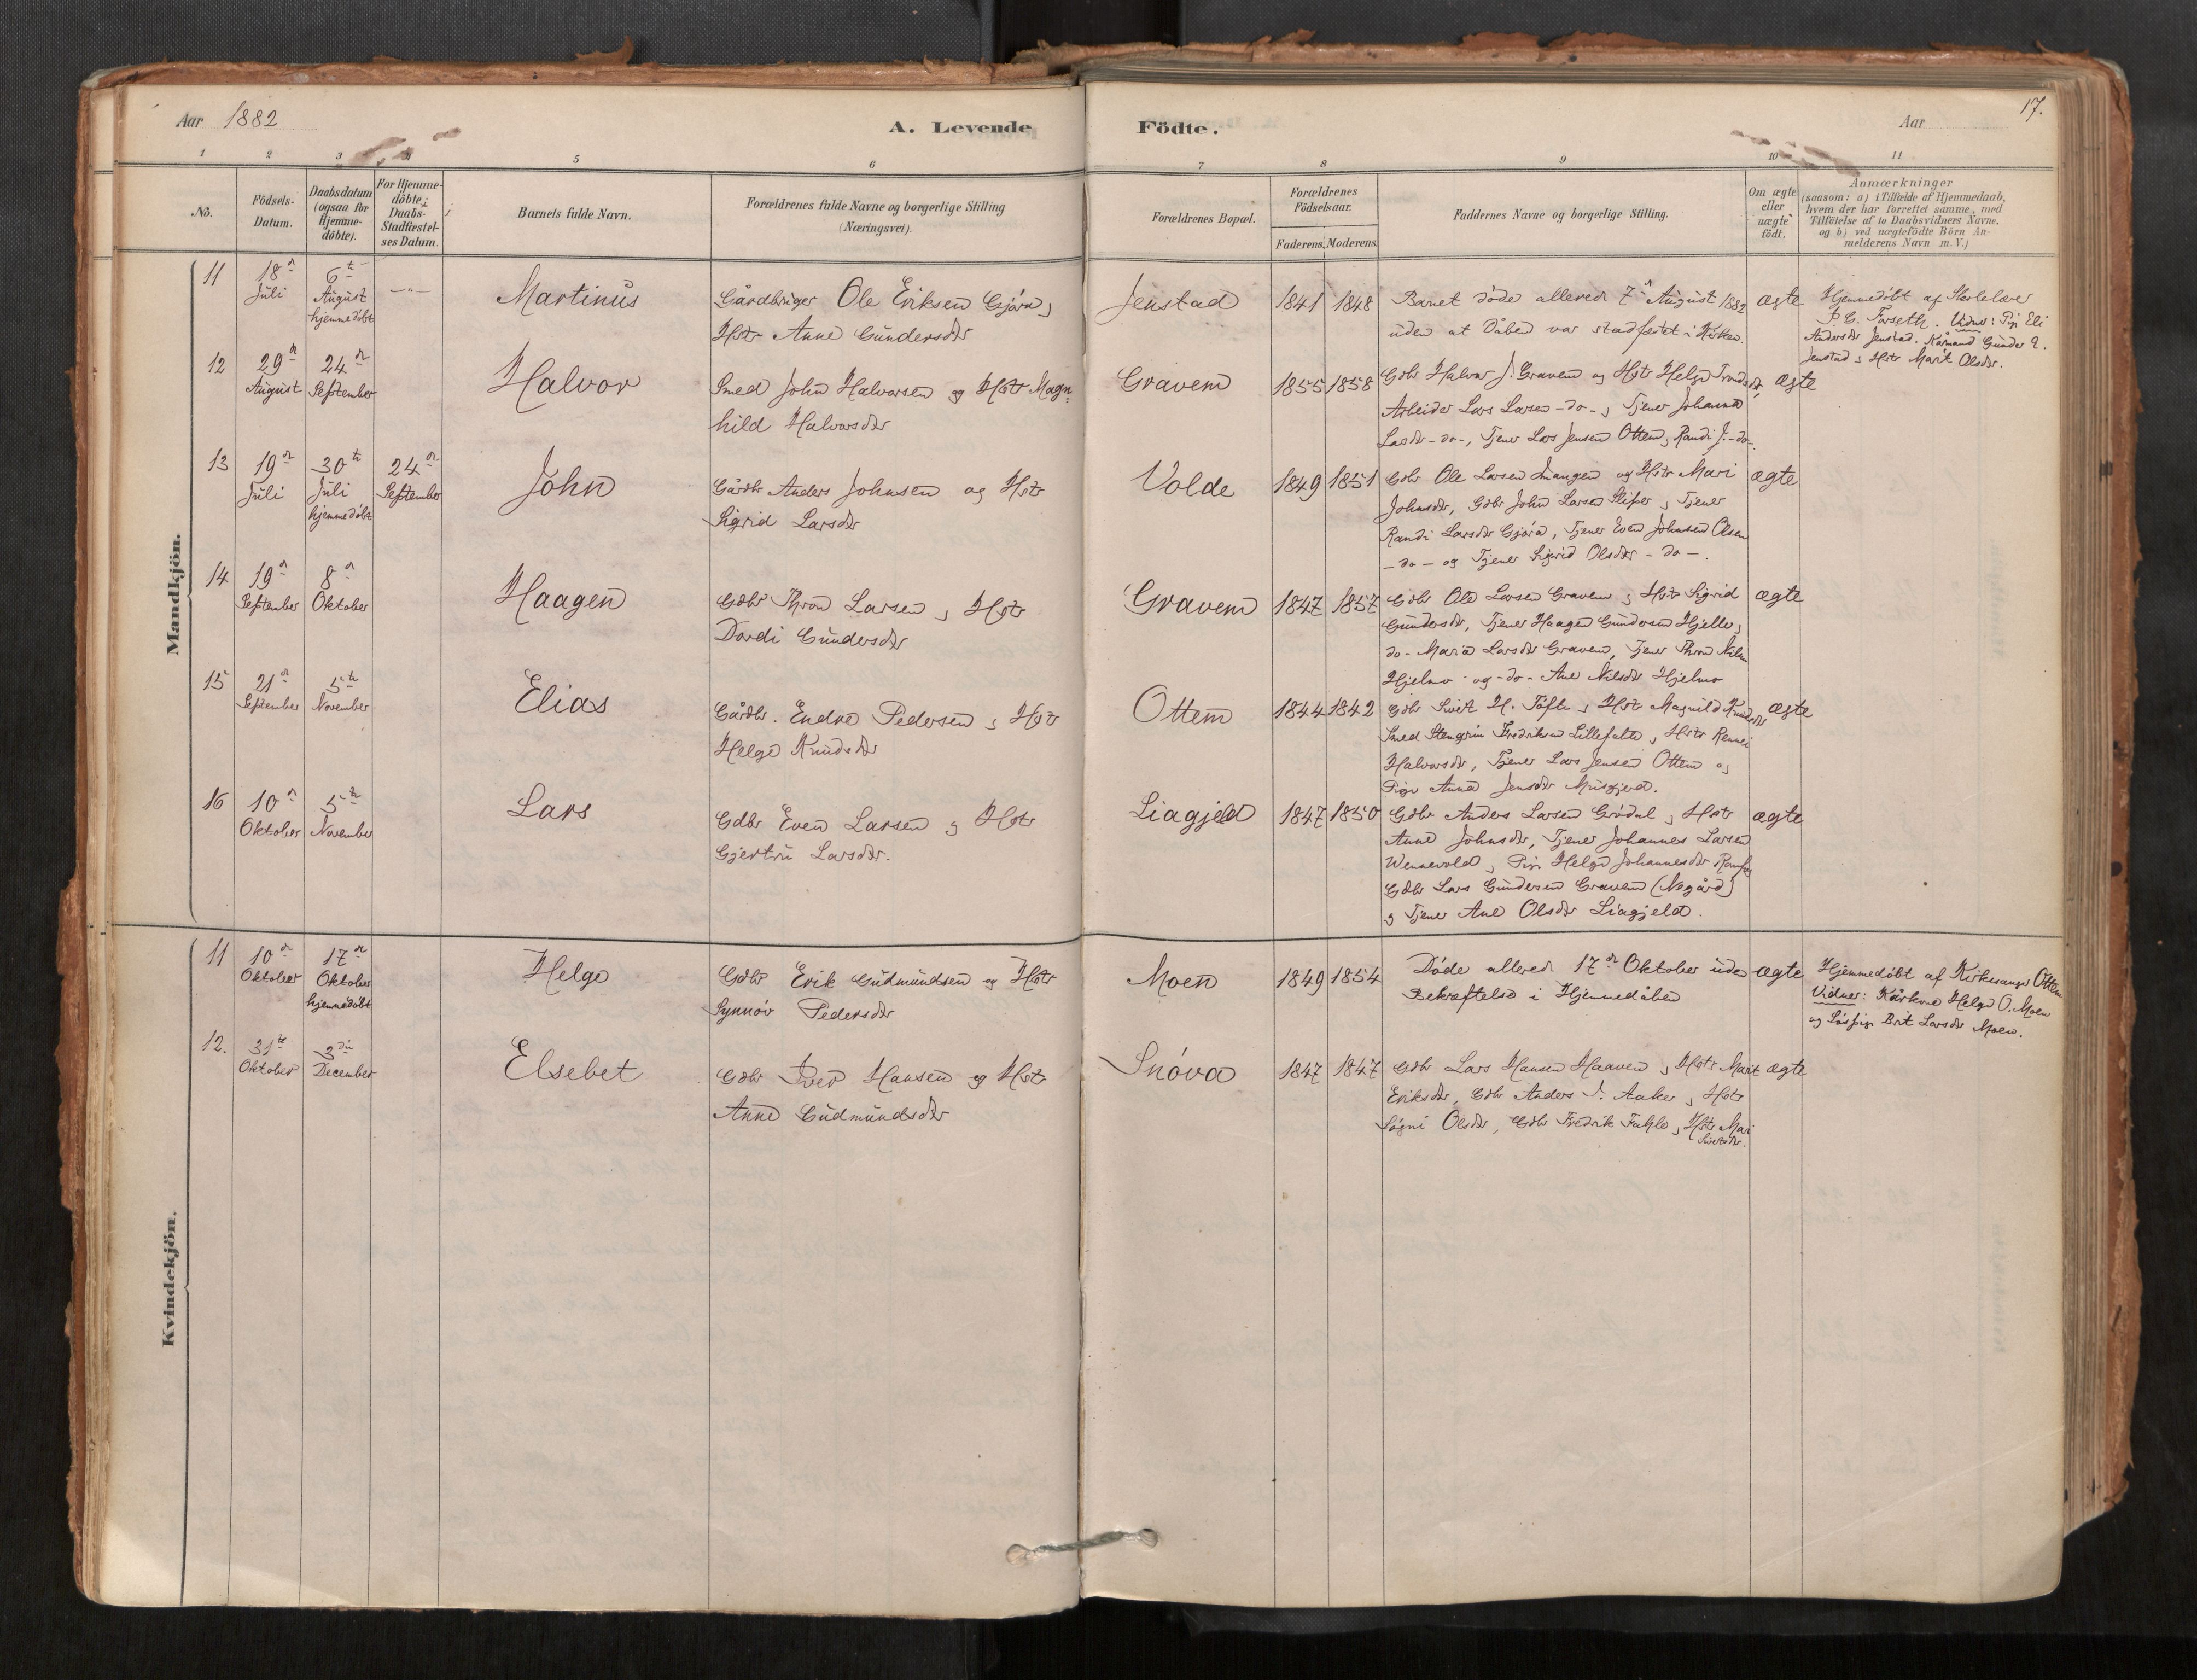 Aar 1882
A. Levende
Födte.
Aar
17.
1 2 3 4 5 6 7 8 9 10 11
No.
Födsels-
Datum.
Daabsdatum
(ogsaa for
Hjemme-
döbte).
For Hjemme-
döbte;
Daabs-
Stadfæstel-
ses Datum.
Barnets fulde Navn.
Forældrenes fulde Navne og borgerlige Stilling
(Næringsvei).
Forældrenes Bopæl.
Forældrenes
Födselsaar.
Faderens. Moderens.
Faddernes Navne og borgerlige Stilling.
Om ægte
eller
uægte
födt.
Anmærkninger
(saasom: a) i Tilfælde af Hjemmedaab,
hvem der har forrettet samme, med
Tilföielse af to Daabsvidners Navne.
og b) ved uægtefödte Börn An-
melderens Navn m. V.)
Mandkjön.
11 18n 6te
Juli August —"—
hjemmedöbt
Martinus
Gårdbruger Ole Eriksen Gjöra,
Hstr Anne Gundersdtr
Jenstad 1841 1848
Barnet döde allerede 7n August 1882
uden at Dåben var stadfestet i Kirken.
ægte
Hjemmedöbt af Skolelærer
Forseth. Vidner: Pige Eli
Andersdtr Jenstad. Kårmand Gunder E.
Jenstad, Hstr Marit Olsdtr.
12 29n 24n
August September
Halvor
Smed John Halvorsen og Hstr Magn-
hild Halvorsdtr
Gravem 1855 1858
Gdbr Halvor J. Gravem og Hstr Helge
Arbeider Lars Larsen -do-, Tjener Johanna
Larsdtr -do-, Tjener Lars Jensen Ottem, Randi J. -do-.
ægte
13 19n 30te 24n
Juli Juli September
hjemmedöbt
John
Gårdbr Anders Johnsen og Hstr
Sigrid Larsdtr
Volde 1849 1851
Gdbr Ole Larsen Tmangen og Hstr Mari
Johnsdtr, Gdbr John Larsen, Tjener
Randi Larsdtr Gjöra, Tjener Even Johnsen Olsen
-do- og Tjener Sigrid Olsdtr -do-.
ægte
14 19n 8n
September Oktober
Haagen
Gdbr Thron Larsen, Hstr
Dordi Gundersdtr
Gravem 1847 1857
Gdbr Ole Larsen Gravem, Hstr Sigrid
Gundersdtr, Tjener Haagen Gundersen Hjelle,
do- Maria Larsdtr Gravem, Tjener Thron
Hjelmo og -do- Ane Nilsdtr Hjelmo
ægte
15 21n 5te
September November
Elias
Gårdbr. Endre Pedersen, Hstr
Helge Knudsdtr
Ottem 1844 1842
Gdbr Sivert H. Töfte, Hstr Magnild
Smed Stengrim Fredriksen Lillefale, Hstr
Halvorsdtr, Tjener Lars Jensen Ottem og
Pige Anna Jensdtr Musgjerd.
ægte
16 10n 5te
Oktober November
Lars
Gdbr Even Larsen, Hstr
Gjertru Larsdtr.
Liagjeld 1847 1850
Gdbr Anders Larsen Grödal, Hstr
Anne Johnsdtr, Tjener Johannes Larsen
Wennevold, Pige Helge Johannesdtr
Gdbr Lars Gundersen Gravem (Negård)
, Tjener Ane Olsdtr Liagjeld.
ægte
Kvindekjön.
11 10n 17n
Oktober Oktober
hjemmedöbt
Helge
Gdbr Erik Gudmundsen og Hstr
Synnöv Pedersdtr
Moen 1849 1854
Döde allerede 17n Oktober uden
Bekræftelse i Hjemmedåben
ægte
Hjemmedöbt af Kirkesanger Ottem
Vidner: Kårkone Helge O. Moen
og Pige Brit Larsdtr Moen.
12. 31te 3die
Oktober December
Elsebet
Gdbr Iver Hansen og Hstr
Anne Gudmundsdtr
Snöva 1847 1847
Gdbr Lars Hansen Haaven, Hstr Marit
Eriksdtr, Gdbr Anders I. Aaker, Hstr
Sögni Olsdtr, Gdbr Fredrik Fahle, Hstr Mari
Sivertsdtr.
ægte